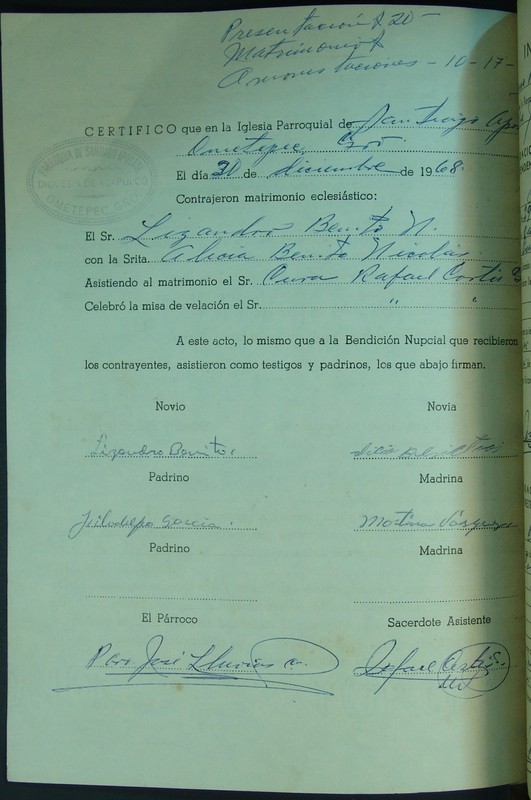 Presentación
Matrimonio
Amonestaciones - 10-17-
CERTIFICO que en la Iglesia Parroquial de Santiago Após
Ometepec, Gro.
El día 20 de diciembre de 1968.
Contrajeron matrimonio eclesiástico:
PARROQUIA DE SANTIAGO
DIOCESIS DE ACAPULCO
OMETEPEC
El Sr. Lizandro Benito N.
con la Srita. Alicia Benito Nicolás
Asistiendo al matrimonio el Sr. Cura Rafael Cortés
Celebró la misa de velación el Sr. " "
A este acto, lo mismo que a la Bendición Nupcial que recibieron
los contrayentes, asistieron como testigos y padrinos, los que abajo firman.
Novio Novia
Lizandro Benito
Padrino Madrina
García Martina Vásquez
Padrino Madrina
El Párroco Sacerdote Asistente
Pbro José Rafael Cortés